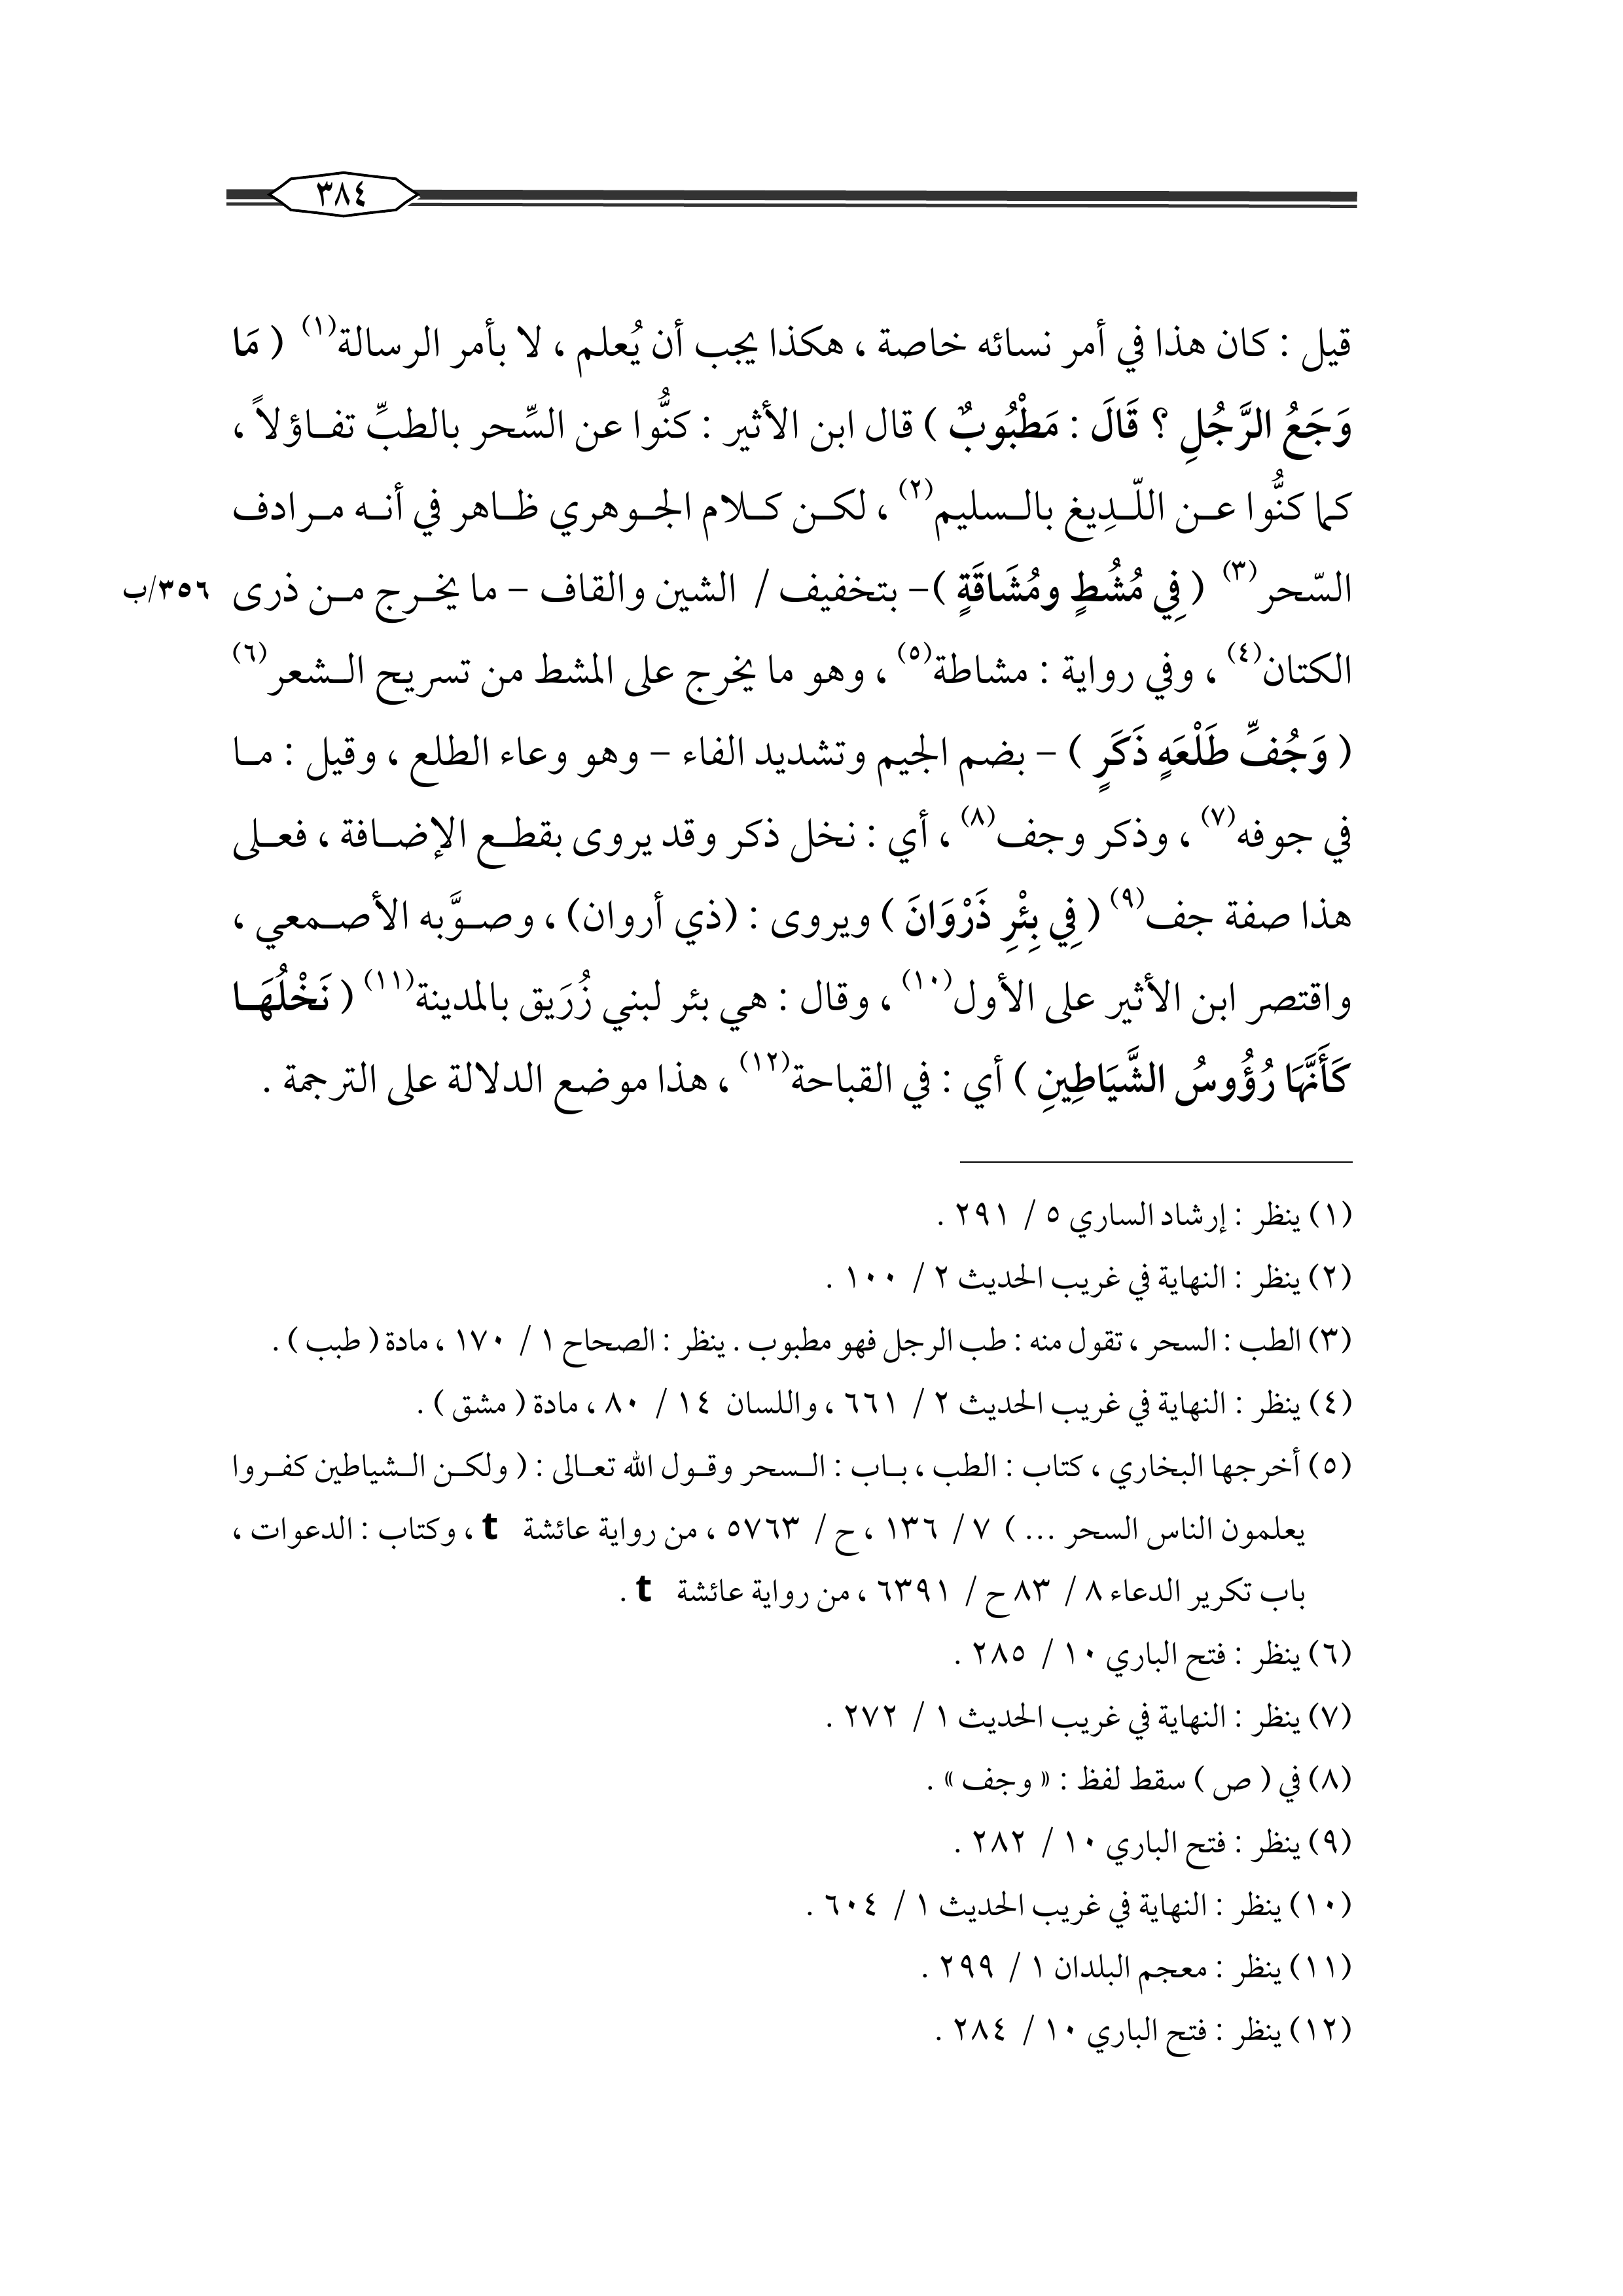 ٣٨٤
قيل : كان هذا في أمر نسائه خاصة ، هكذا يجب أن يُعلم ، لا بأمر الرسالة(١) ( مَا
وَجَعُ الرَّجُلِ ؟ قَالَ : مَطْبُوبٌ ) قال ابن الأثير : كنُّوا عن السِّحر بالطبِّ تفاؤلاً ،
كما كنُّوا عن اللّدِيغ بالسليم(٢) ، لكن كلام الجوهري ظاهر في أنه مرادف
السّحر(٣) ( فِي مُشُطٍ ومُشَاقَةٍ )– بتخفيف / الشين والقاف – ما يخرج من ذرى
٣٥٦/ب
الكتان(٤) ، وفي رواية : مشاطة(٥) ، وهو ما يخرج على المشط من تسريح الشعر(٦)
( وَجُفِّ طَلْعَهٍ ذَكَرٍ ) – بضم الجيم وتشديد الفاء – وهو وعاء الطلع ، وقيل : ما
في جوفه(٧) ، وذكر وجف(٨) ، أي : نخل ذكر وقد يروى بقطع الإضافة ، فعلى
هذا صفة جف(٩) ( فِي بِئْرِ ذَرْوَانَ ) ويروى : (ذي أروان) ، وصوَّبه الأصمعي ،
واقتصر ابن الأثير على الأول(١٠) ، وقال : هي بئر لبني زُرَيق بالمدينة(١١) ( نَخْلُهَا
كَأَنَّهَا رُؤُوسُ الشَّيَاطِينِ ) أي : في القباحة(١٢) ، هذا موضع الدلالة على الترجمة .
(١) ينظر : إرشاد الساري ٥ / ٢٩١ .
(٢) ينظر : النهاية في غريب الحديث ٢ / ١٠٠ .
(٣) الطب : السحر ، تقول منه : طب الرجل فهو مطبوب . ينظر : الصحاح ١ / ١٧٠ ، مادة ( طبب ) .
(٤) ينظر : النهاية في غريب الحديث ٢ / ٦٦١ ، واللسان ١٤ / ٨٠ ، مادة ( مشق ) .
(٥) أخرجها البخاري ، كتاب : الطب ، باب : السحر وقول الله تعالى : ( ولكن الشياطين كفروا
يعلمون الناس السحر ... ) ٧ / ١٣٦ ، ح / ٥٧٦٣ ، من رواية عائشة t ، وكتاب : الدعوات ،
باب تكرير الدعاء ٨ / ٨٣ ح / ٦٣٩١ ، من رواية عائشة t .
(٦) ينظر : فتح الباري ١٠ / ٢٨٥ .
(٧) ينظر : النهاية في غريب الحديث ١ / ٢٧٢ .
(٨) في ( ص ) سقط لفظ : « وجف » .
(٩) ينظر : فتح الباري ١٠ / ٢٨٢ .
(١٠) ينظر : النهاية في غريب الحديث ١ / ٦٠٤ .
(١١) ينظر : معجم البلدان ١ / ٢٩٩ .
(١٢) ينظر : فتح الباري ١٠ / ٢٨٤ .